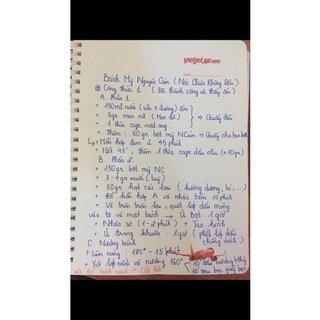 vietjetair.com
Bánh Mỳ Nguyên Cám (Nồi Chiên Không Dầu)
Công thức 1 (Đã thành công và thấy ổn)
A. Phần 1
+ 150ml nước (sữa đường) ấm
+ 3gr men nở (Men đỏ) → Quấy đều
+ 1 thìa cafe mật ong
+ Thêm: 50gr bột mỳ NCám → Quấy cho tan bột
↳ Hỗn hợp đem ủ 45 phút
+ Hết 45', thêm 1 thìa cafe dầu oliu (≈10gr)
B. Phần 2
+ 150gr bột mỳ NC
+ 3-4gr muối (tuỳ)
+ 30gr hạt các loại (hướng dương, bí...)
+ Đổ hỗn hợp A và nhào trộn 10 phút
+ Vê tròn trên lau, quét lớp dầu mỏng
vào tô và mặt bánh → Ủ Bột 1 giờ
+ Nhào sơ (1-2 phút) + Tạo hình
+ Ủ trong khuôn: 1 giờ (phết lớp dầu
chống dính)
C. Nướng bánh
+ Làm nóng: 180° - 15 phút
+ Xịt lớp nước và nướng 160°
bánh nguội → Cắt lát